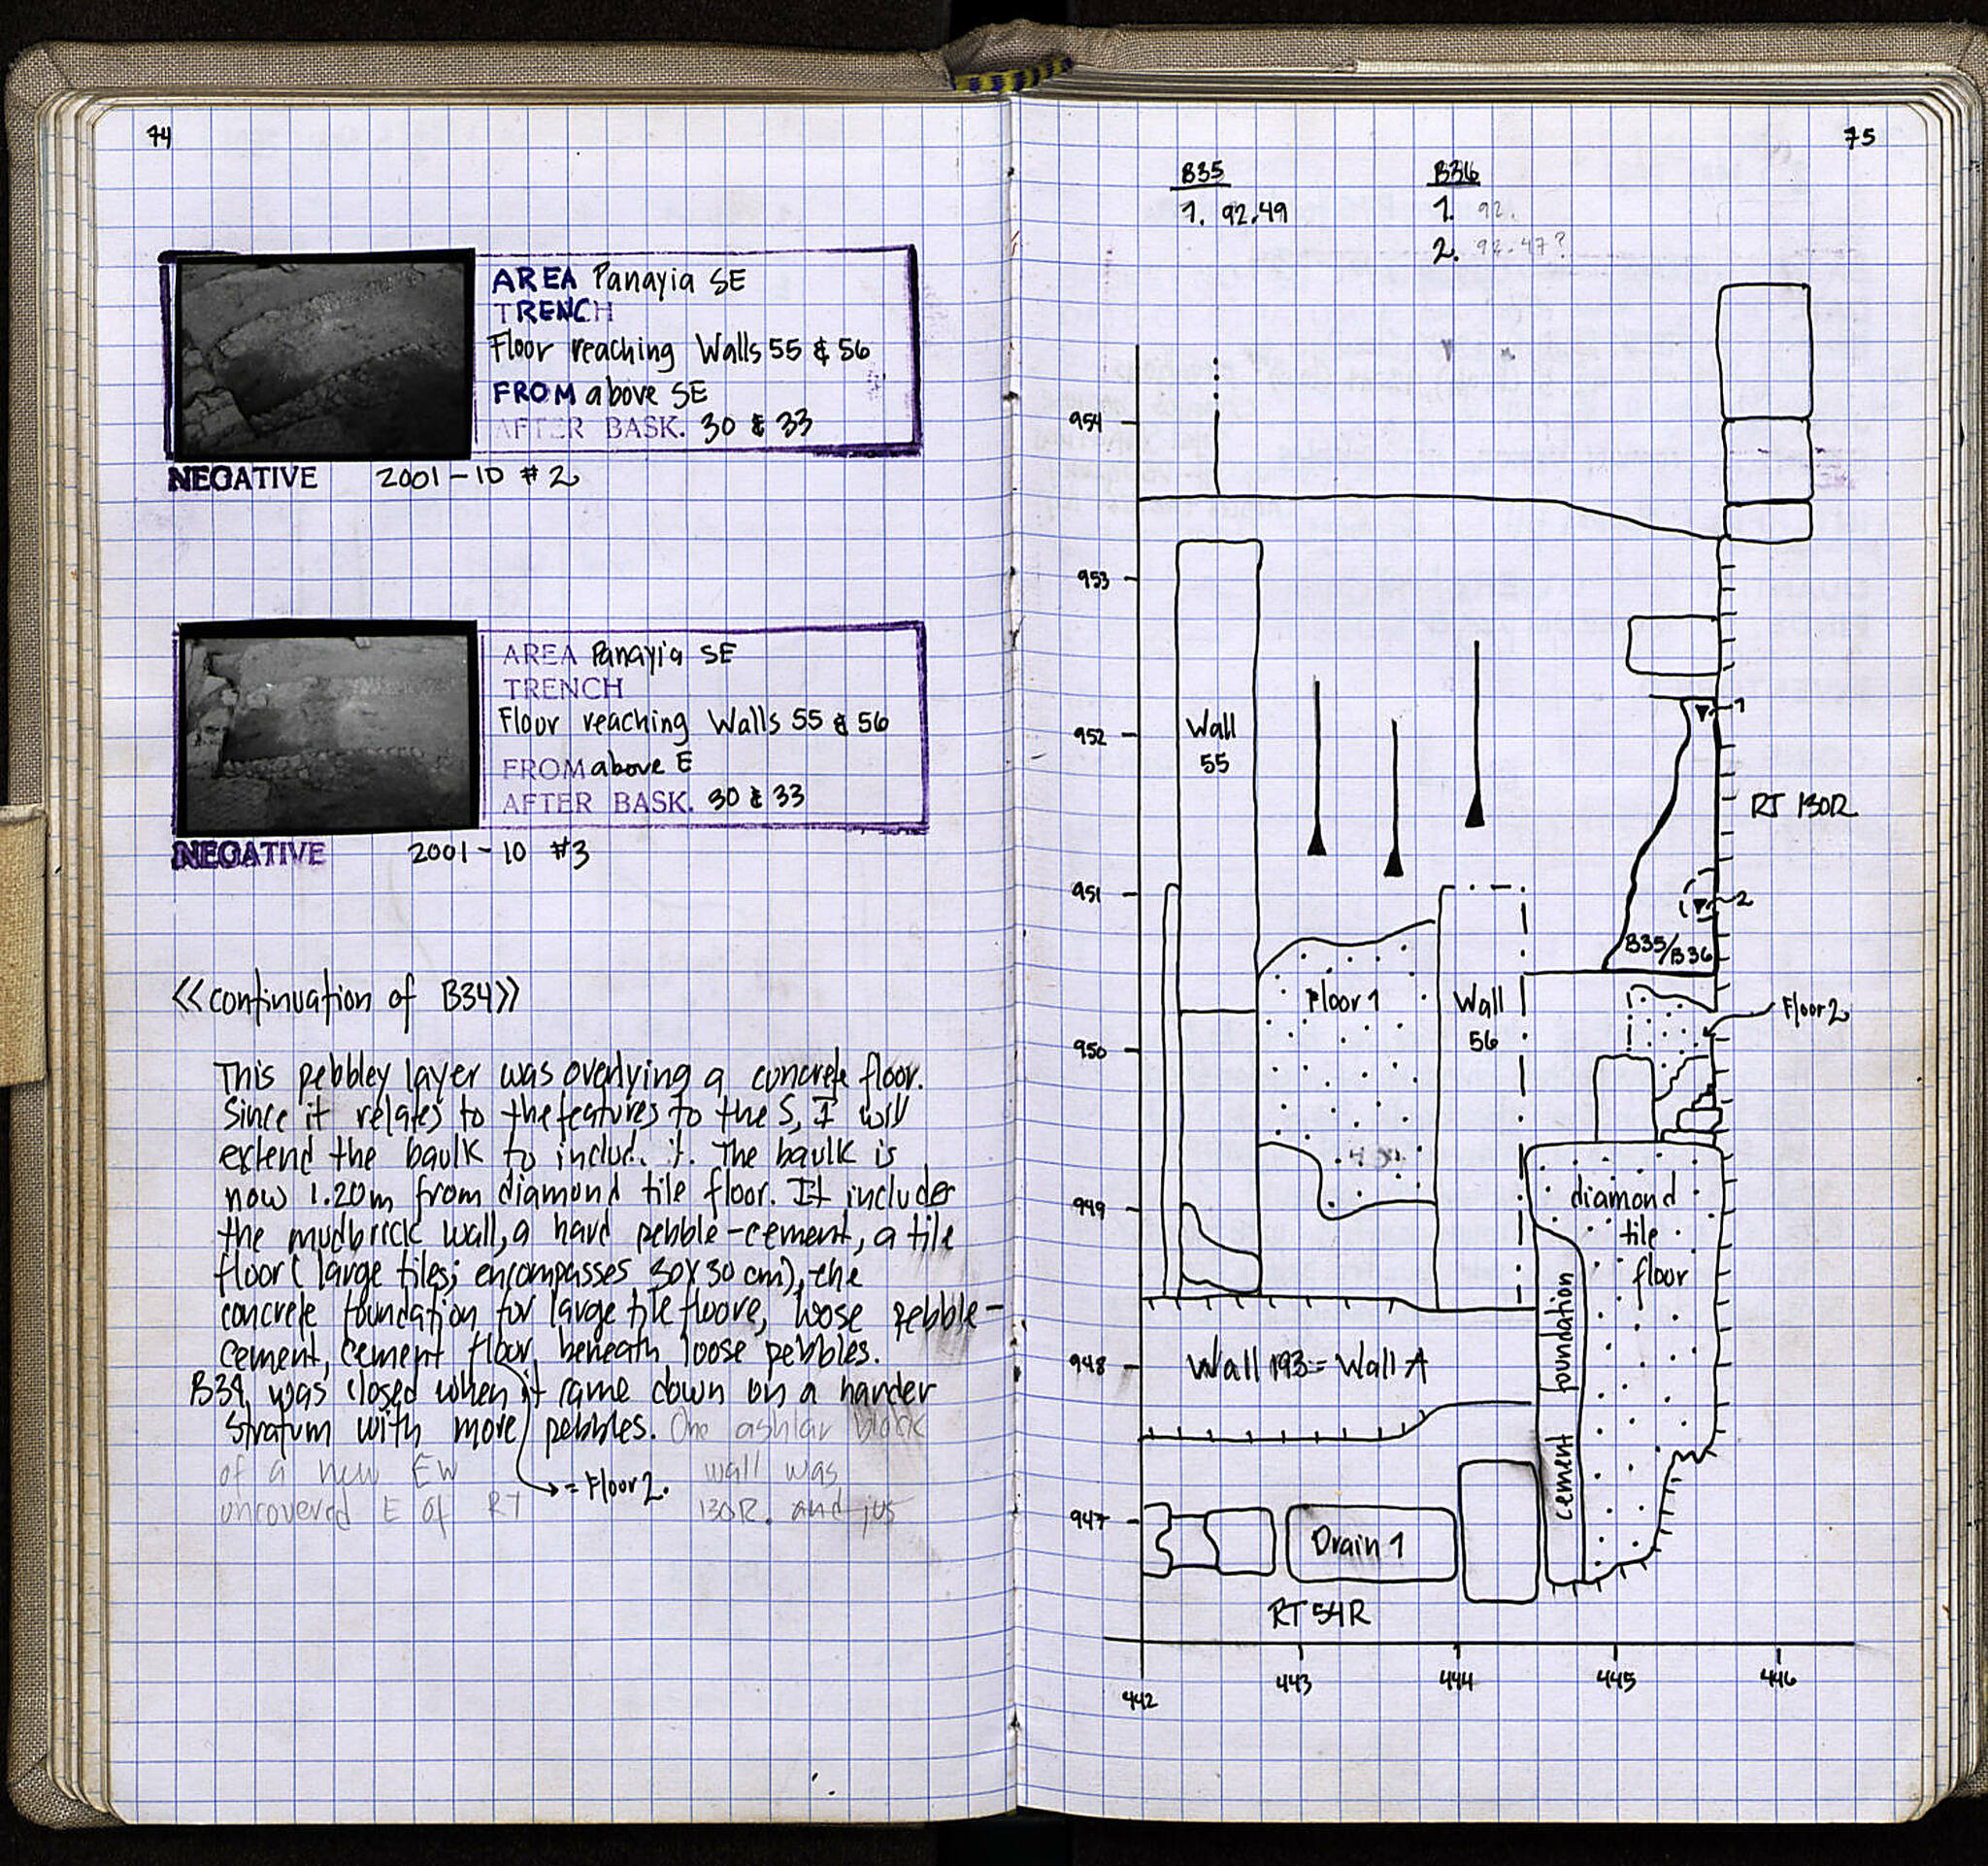 74
AREA Panayia SE
TRENCH
Floor reaching Walls 55 & 56
FROM above SE
AFTER BASK. 30 & 33
NEGATIVE 2001-10 #2
AREA Panayia SE
TRENCH
Floor reaching Walls 55 & 56
FROM above E
AFTER BASK. 30 & 33
NEGATIVE 2001-10 #3
<<continuation of B34>>
This pebbley layer was overlying a concrete floor.
Since it relates to the features to the S, I will
extend the baulk to includ. it. The baulk is
now 1.20m from diamond tile floor. It includes
the mudbrick wall, a hard pebble-cement, a tile
floor (large tiles; encompasses 30x30 cm), the
concrete foundation for large tile floore, loose pebble-
cement, cement floor, beneath loose pebbles.
B34 was closed when it came down on a harder
stratum with more pebbles. One ashlar block
of a new EW wall was
= Floor 2.
uncovered E of RT 130R. and jus
75
B35
1. 92.49
B36
1. 92.
2. 92.47?
954
953
952
951
950
949
948
947
442
443
444
445
446
Wall
55
1
RT 130R
2
B35/B36
Floor 1
Wall
56
Floor 2
diamond
tile
floor
cement foundation
Wall 193 = Wall A
Drain 1
RT 54R